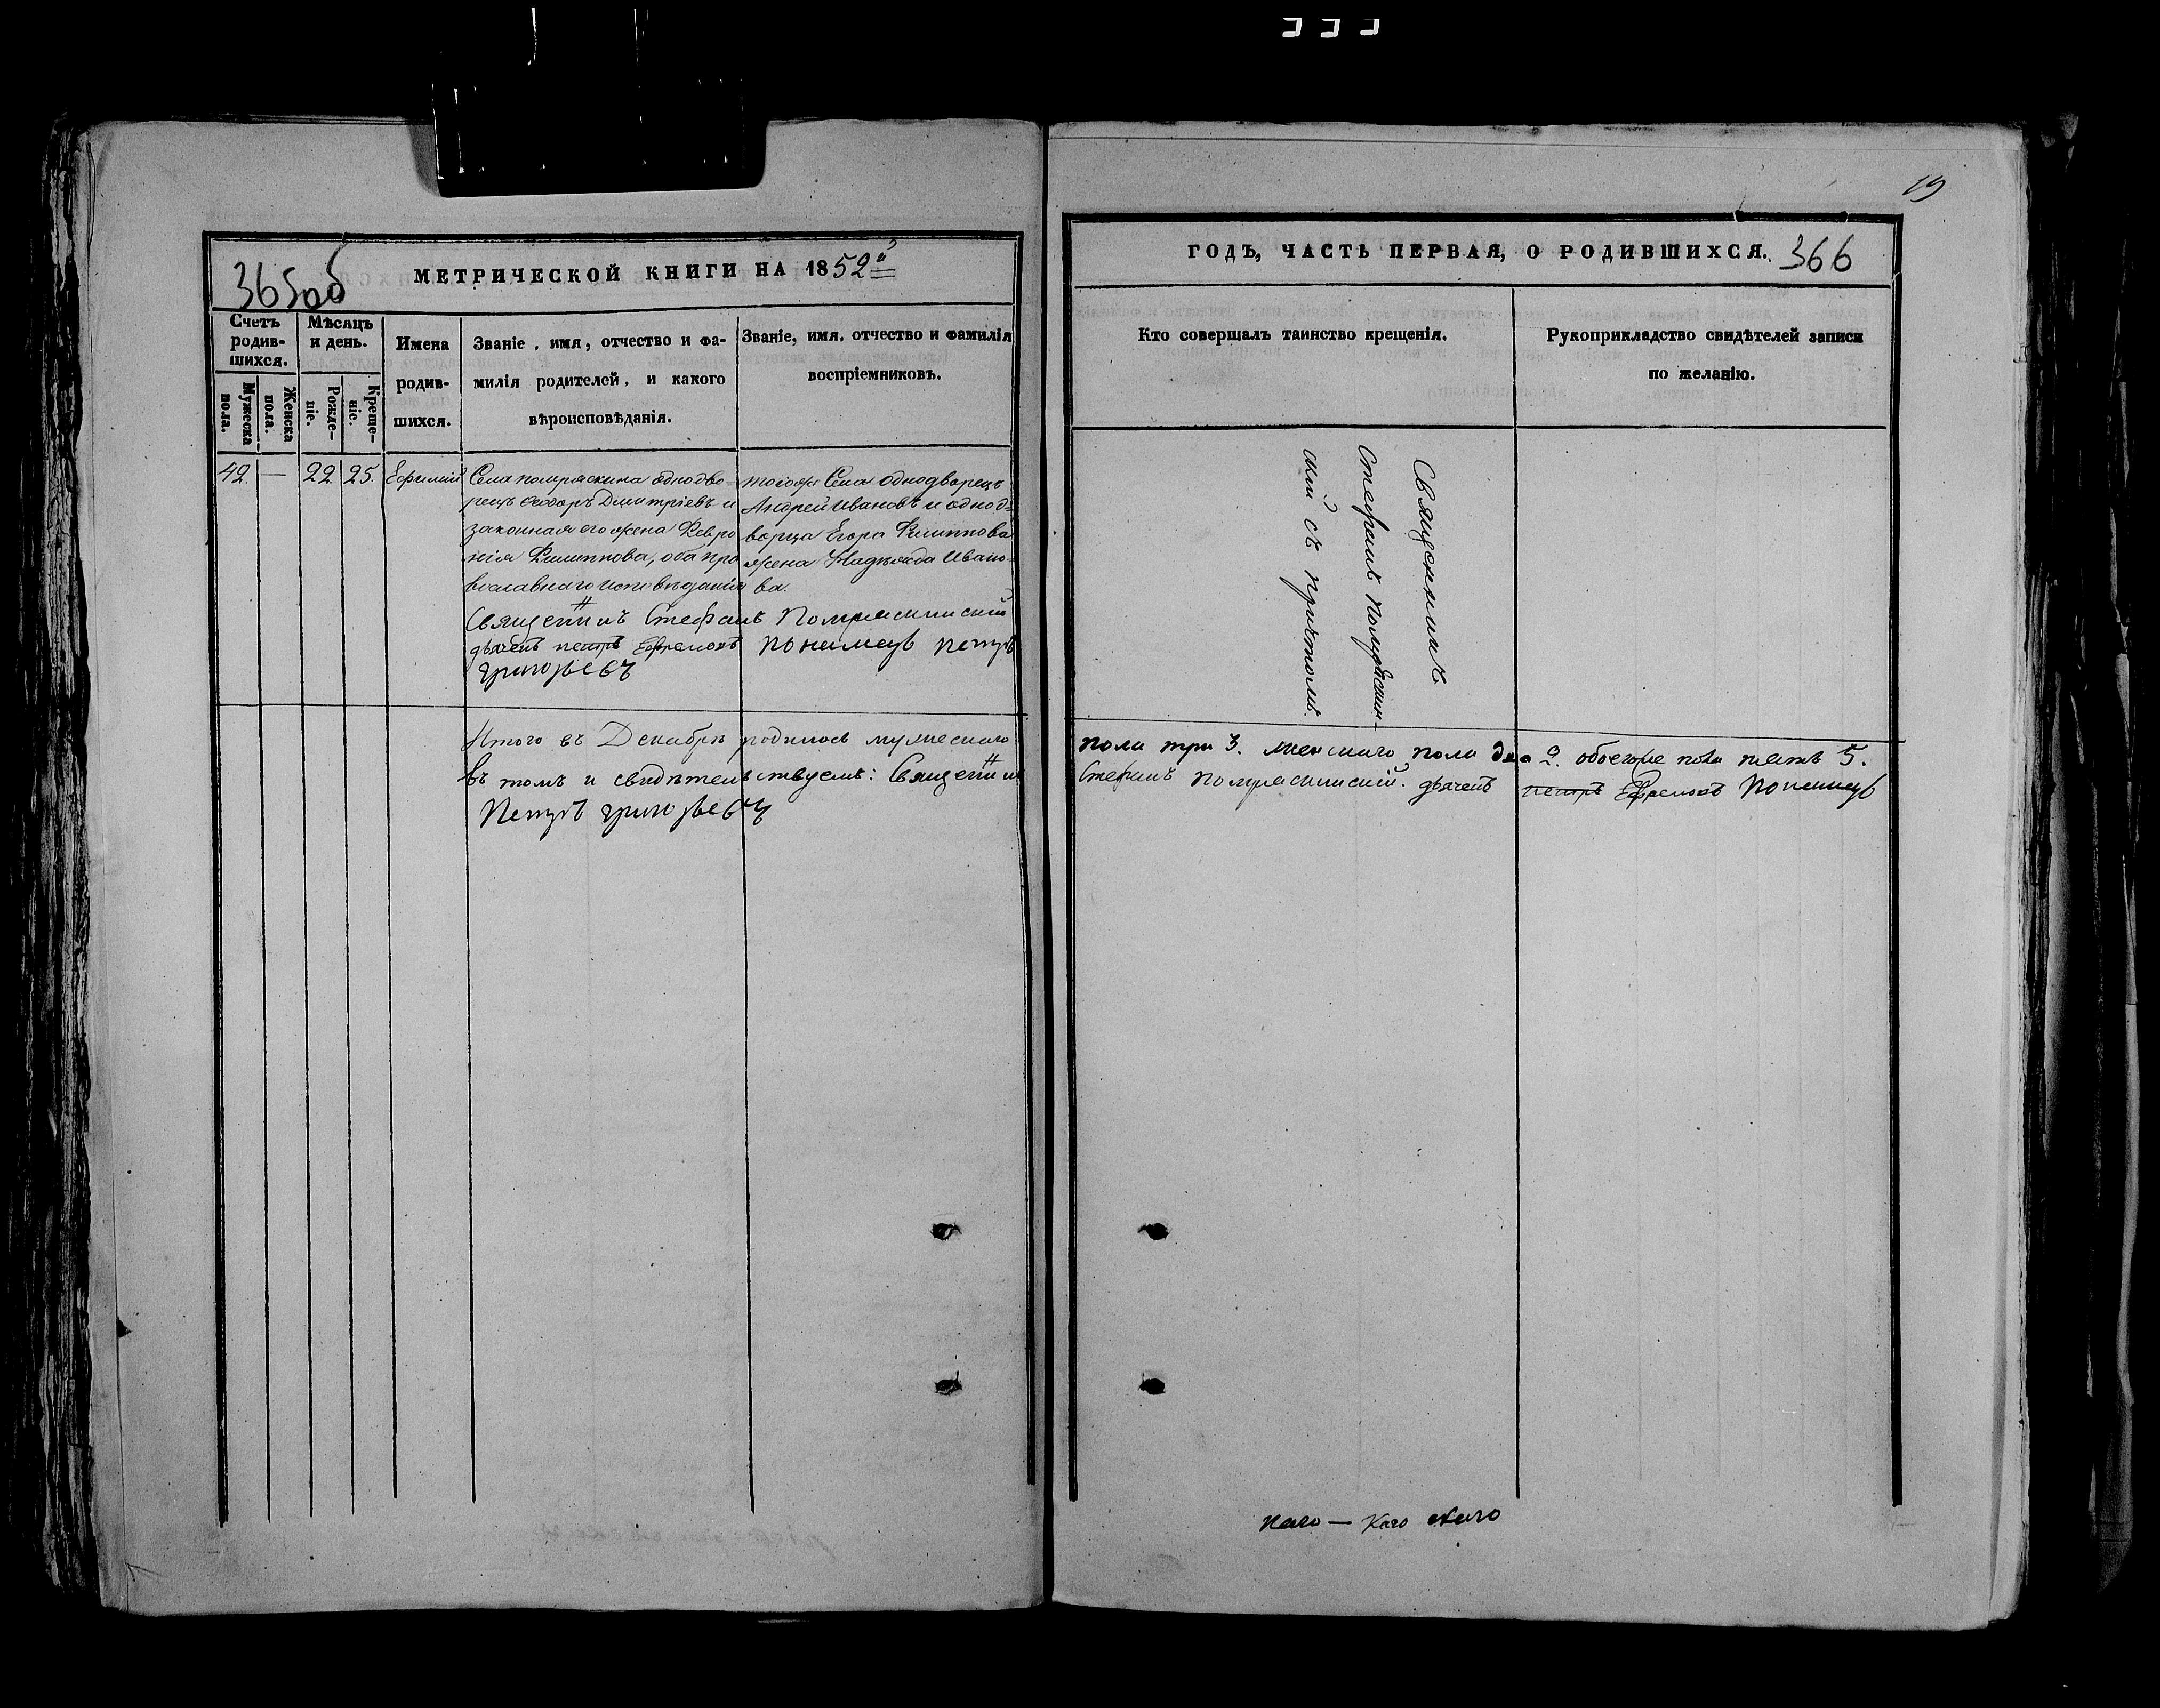 19
365об
МЕТРИЧЕСКОЙ КНИГИ НА 1852й
Счетъ родив-шихся.
Мужеска пола.
Женска пола.
Мѣсяцъ и день.
Рожде-ніе.
Креще-ніе.
Имена родив-шихся.
Званіе, имя, отчество и фа-
милія родителей, и какого
вѣроисповѣданія.
Званіе, имя, отчество и фамилія
воспріемниковъ.
42. — 22. 25. Ефимій
Села помряскина однодво-
рецъ Ѳеодоръ Дмитріевъ и
законная его жена Февро
нія Филиппова, оба пра
вославнаго исповѣданія
тогоже Села однодворецъ
Андрей Ивановъ и однод-
ворца Егора Филиппова
жена Надежда Ивано-
ва.
Священникъ Стефанъ Помряскинскій
дьячекъ петръ Ефремовъ Пономарь Петръ
григорьевъ
Итого въ Декабрѣ родилось мужескаго
въ томъ и свидѣтельствуемъ: Священникъ
Петръ григорьевъ
ГОДЪ, ЧАСТЬ ПЕРВАЯ, О РОДИВШИХСЯ.
366
Кто совершалъ таинство крещенія.
Рукоприкладство свидѣтелей записи
по желанію.
Священникъ
Стефанъ помряскин-
скій съ причтомъ.
пола три 3. женскаго пола два 2. обоегоже пола пять 5.
Стефанъ помряскинскій. дьячекъ петръ Ефремовъ Пономарь